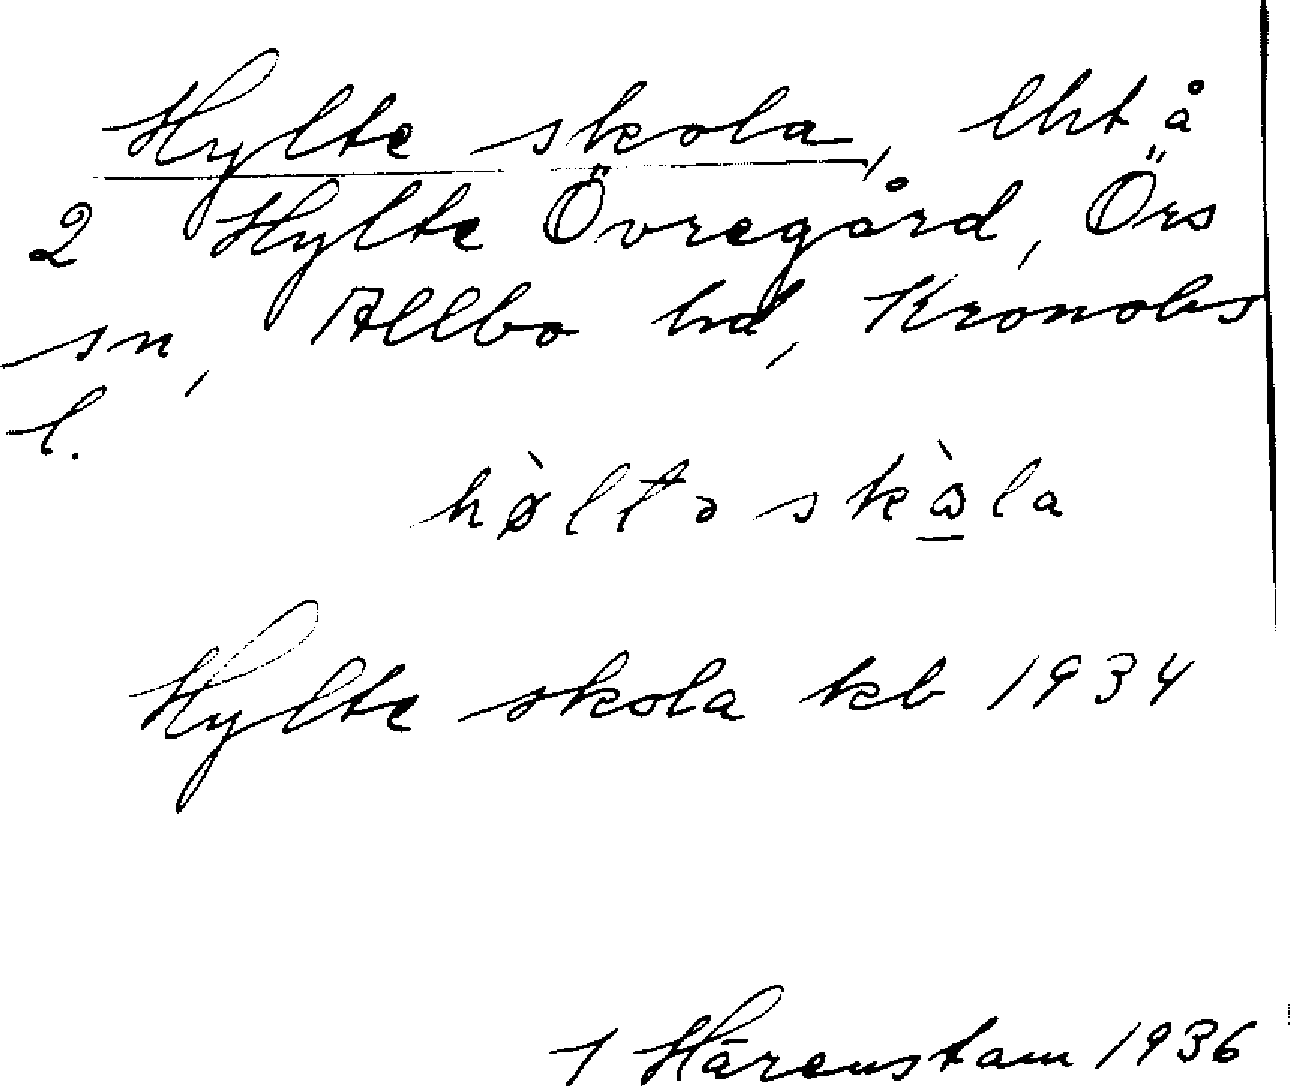 Hylte skola, lht å
2 Hylte Övregård, Örs
sn, Allbo hd, Kronobs
l.
hø̀ltə skὰla
Hylte skola kb 1934
J Härenstam 1936